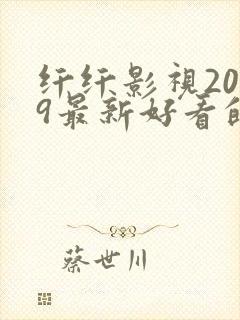 纤纤影視20
9最新好看的
蔡世川